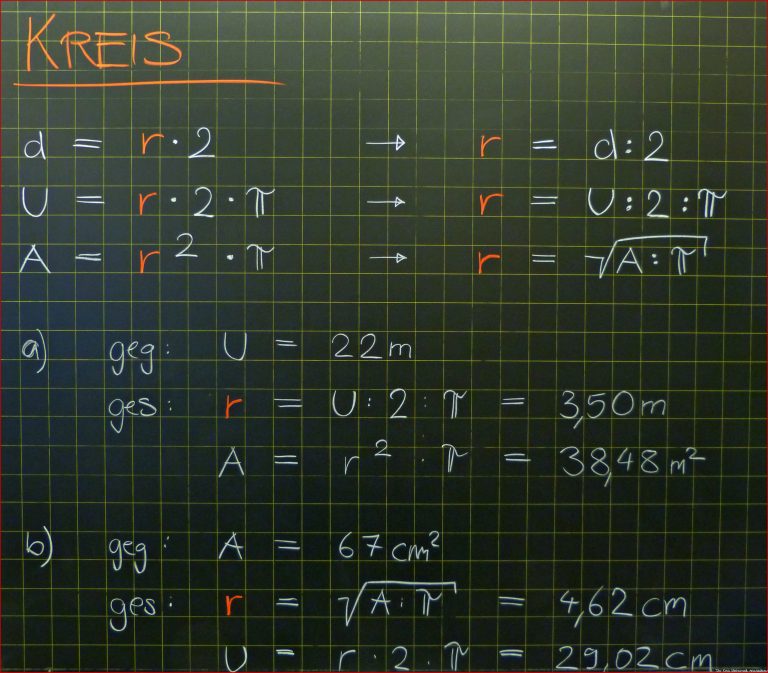 KREIS
d = r · 2 → r = d : 2
U = r · 2 · π → r = U : 2 : π
A = r² · π → r = √A : π
a) geg: U = 22 m
ges: r = U : 2 : π = 3,50 m
A = r² · π = 38,48 m²
b) geg: A = 67 cm²
ges: r = √A : π = 4,62 cm
U = r · 2 · π = 29,02 cm